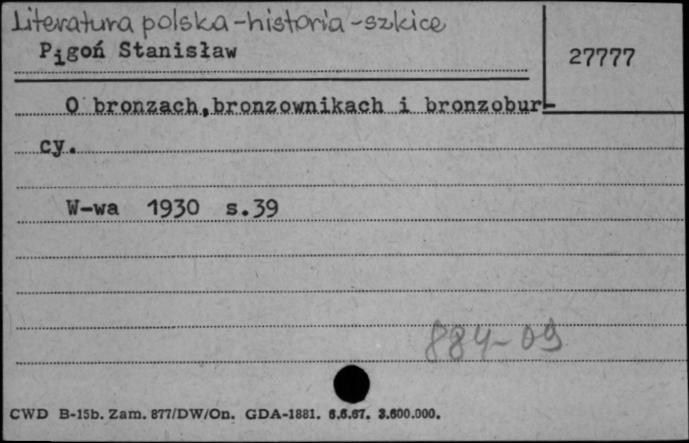 Literatura polska-historia-szkice
Pigoń Stanisław
27777
O bronzach,bronzownikach i bronzobur-
cy.
W-wa 1930 s.39
884-09
CWD B-15b. Zam. 877/DW/On. GDA-1881. 6.6.67. 3.600.000.